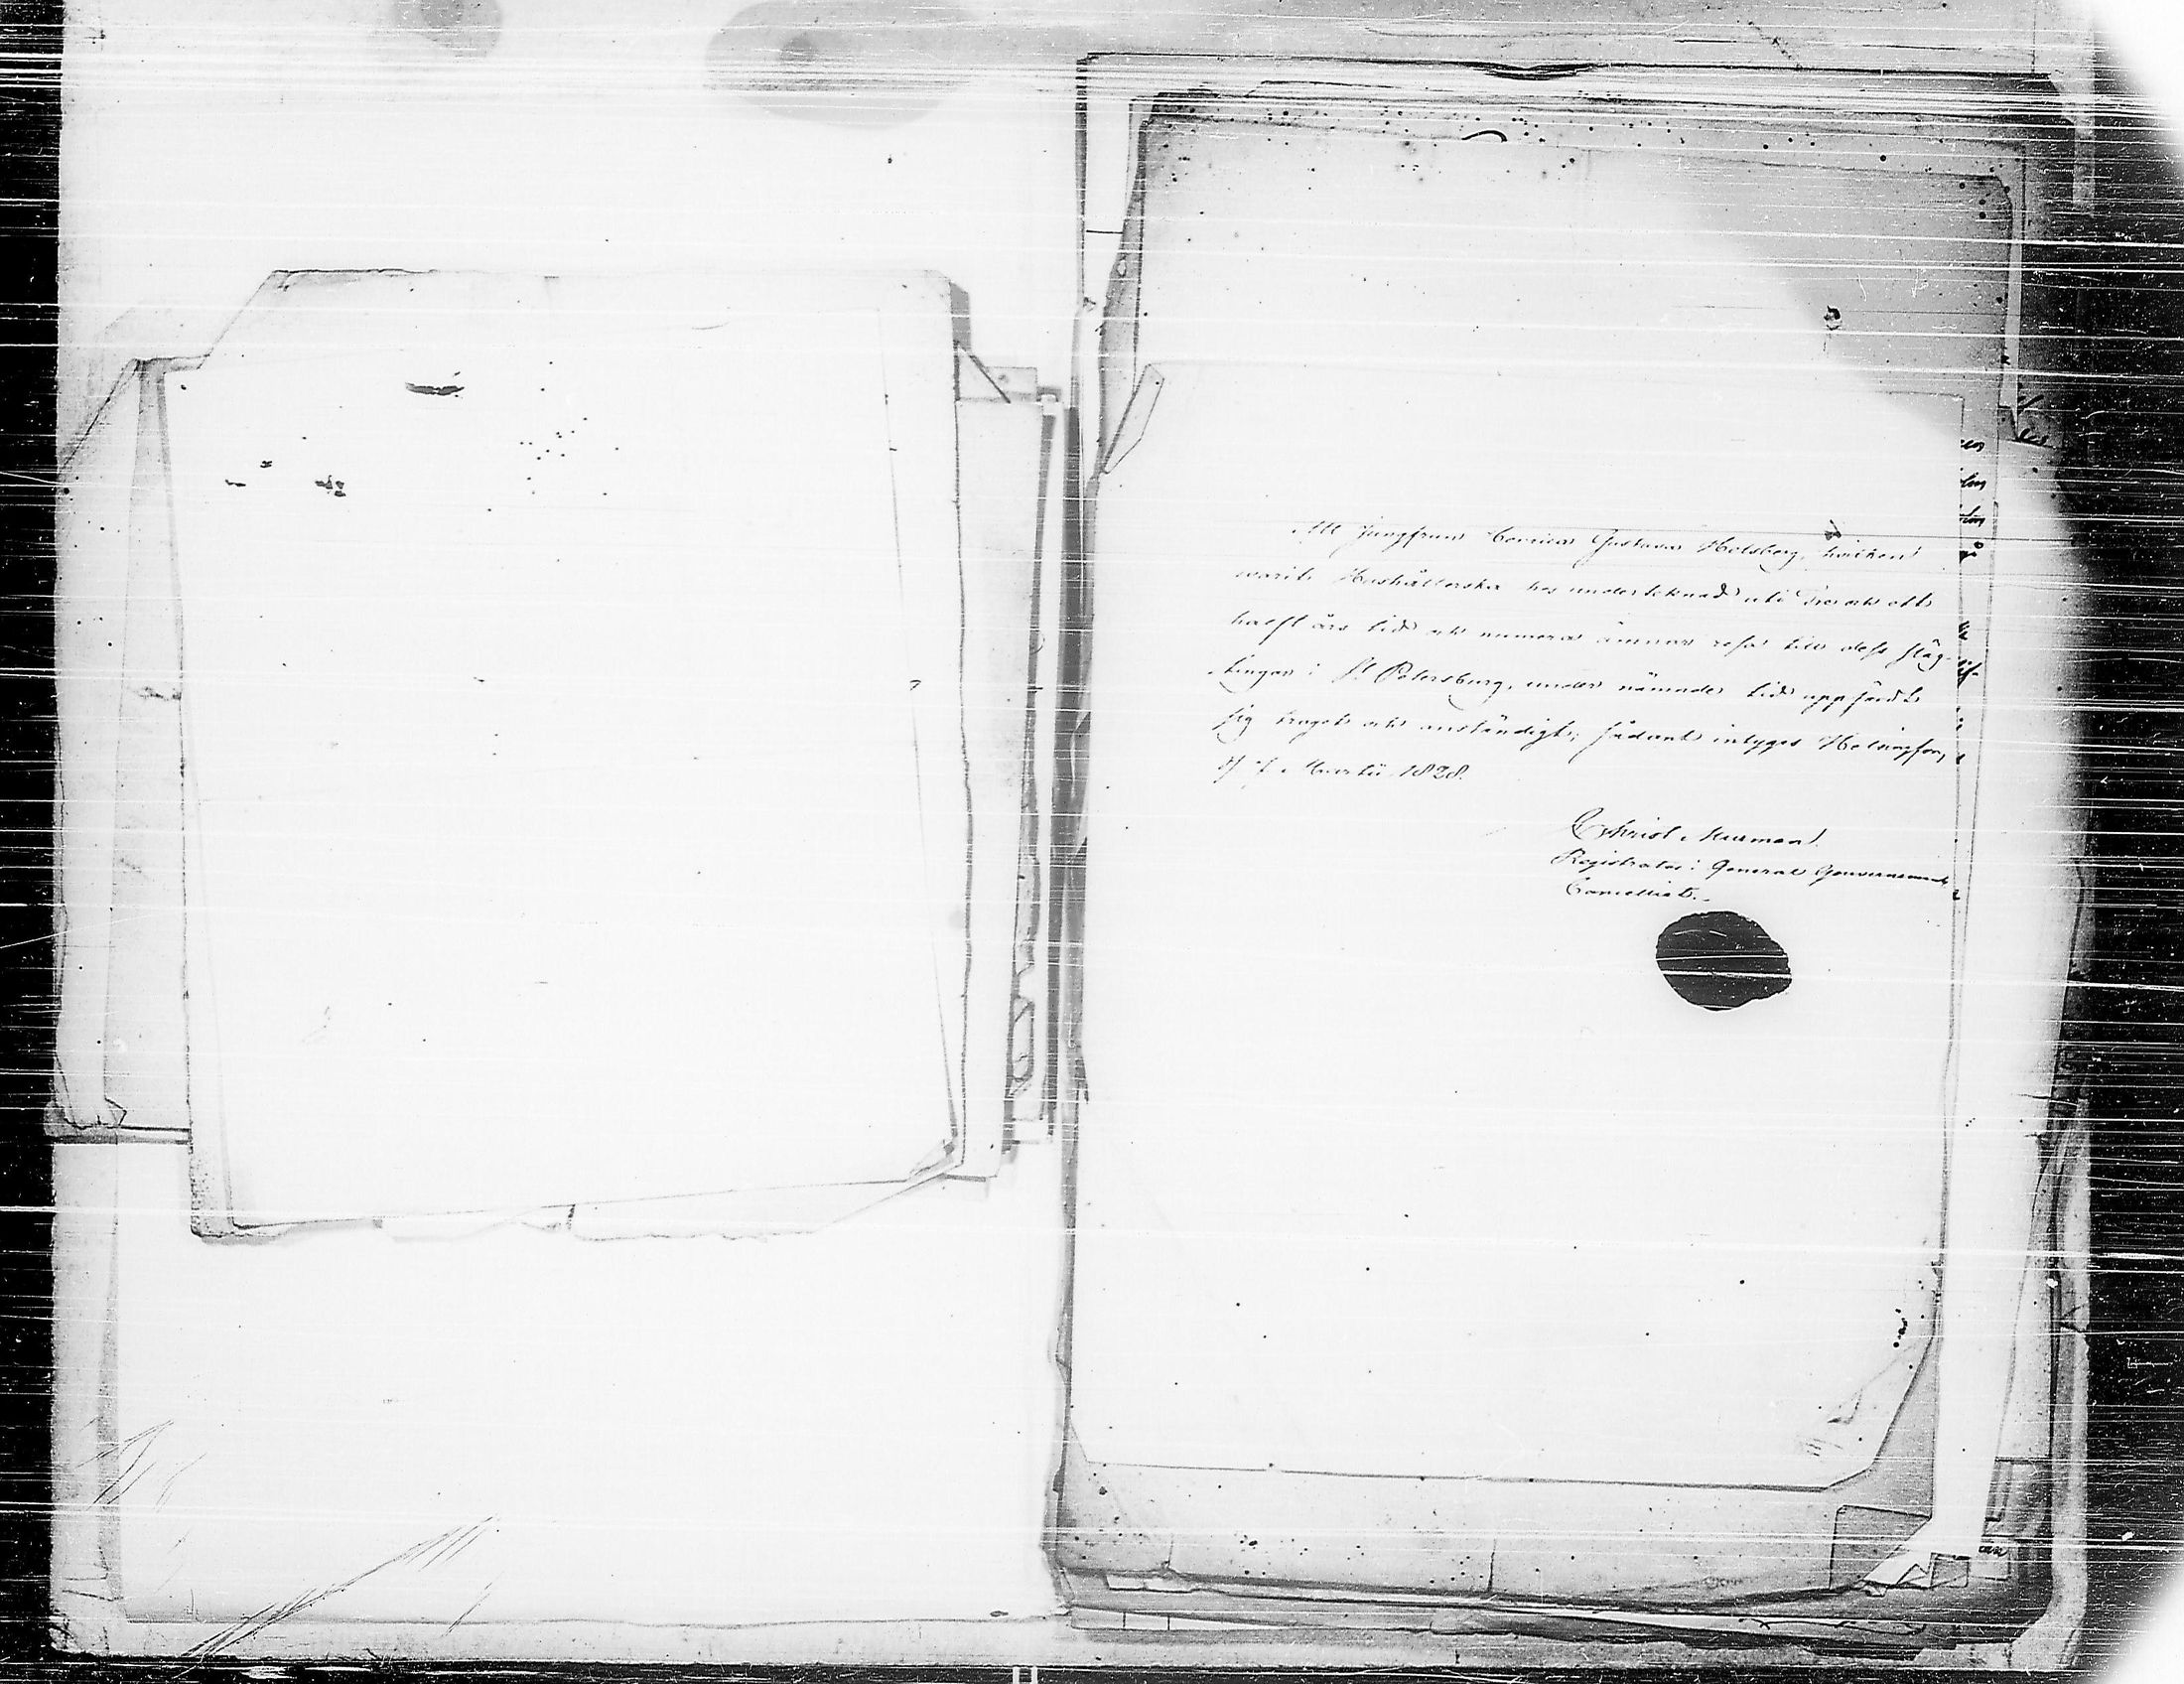 Att Jungfrun Gustava Holsberg, hvilken
varit Hushållerska hos undertecknad uti tre och ett
halft års tid och numera ämnar resa till dess släg-
tingar i St Petersburg, under nämnde tid uppfördt
sig troget och anständigt; sådant intygas Helsingfors
d. 7 Martii 1828.
Christ. Murman
Registrator i General Gouvernements
Cancelliet.